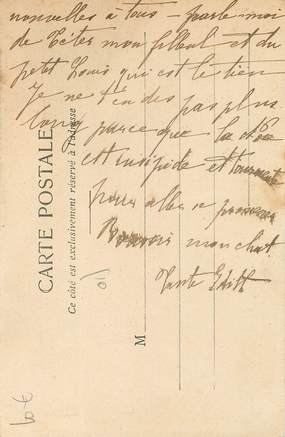 nouvelles à tous – parle-moi
de mon filleul et du
petit Louis qui est le tien
Je ne t'en dis pas plus
long parce que la
est insipide et
pour aller
mon chat.
Tante Edith
CARTE POSTALE
Ce côté est exclusivement réservé à l'adresse
M